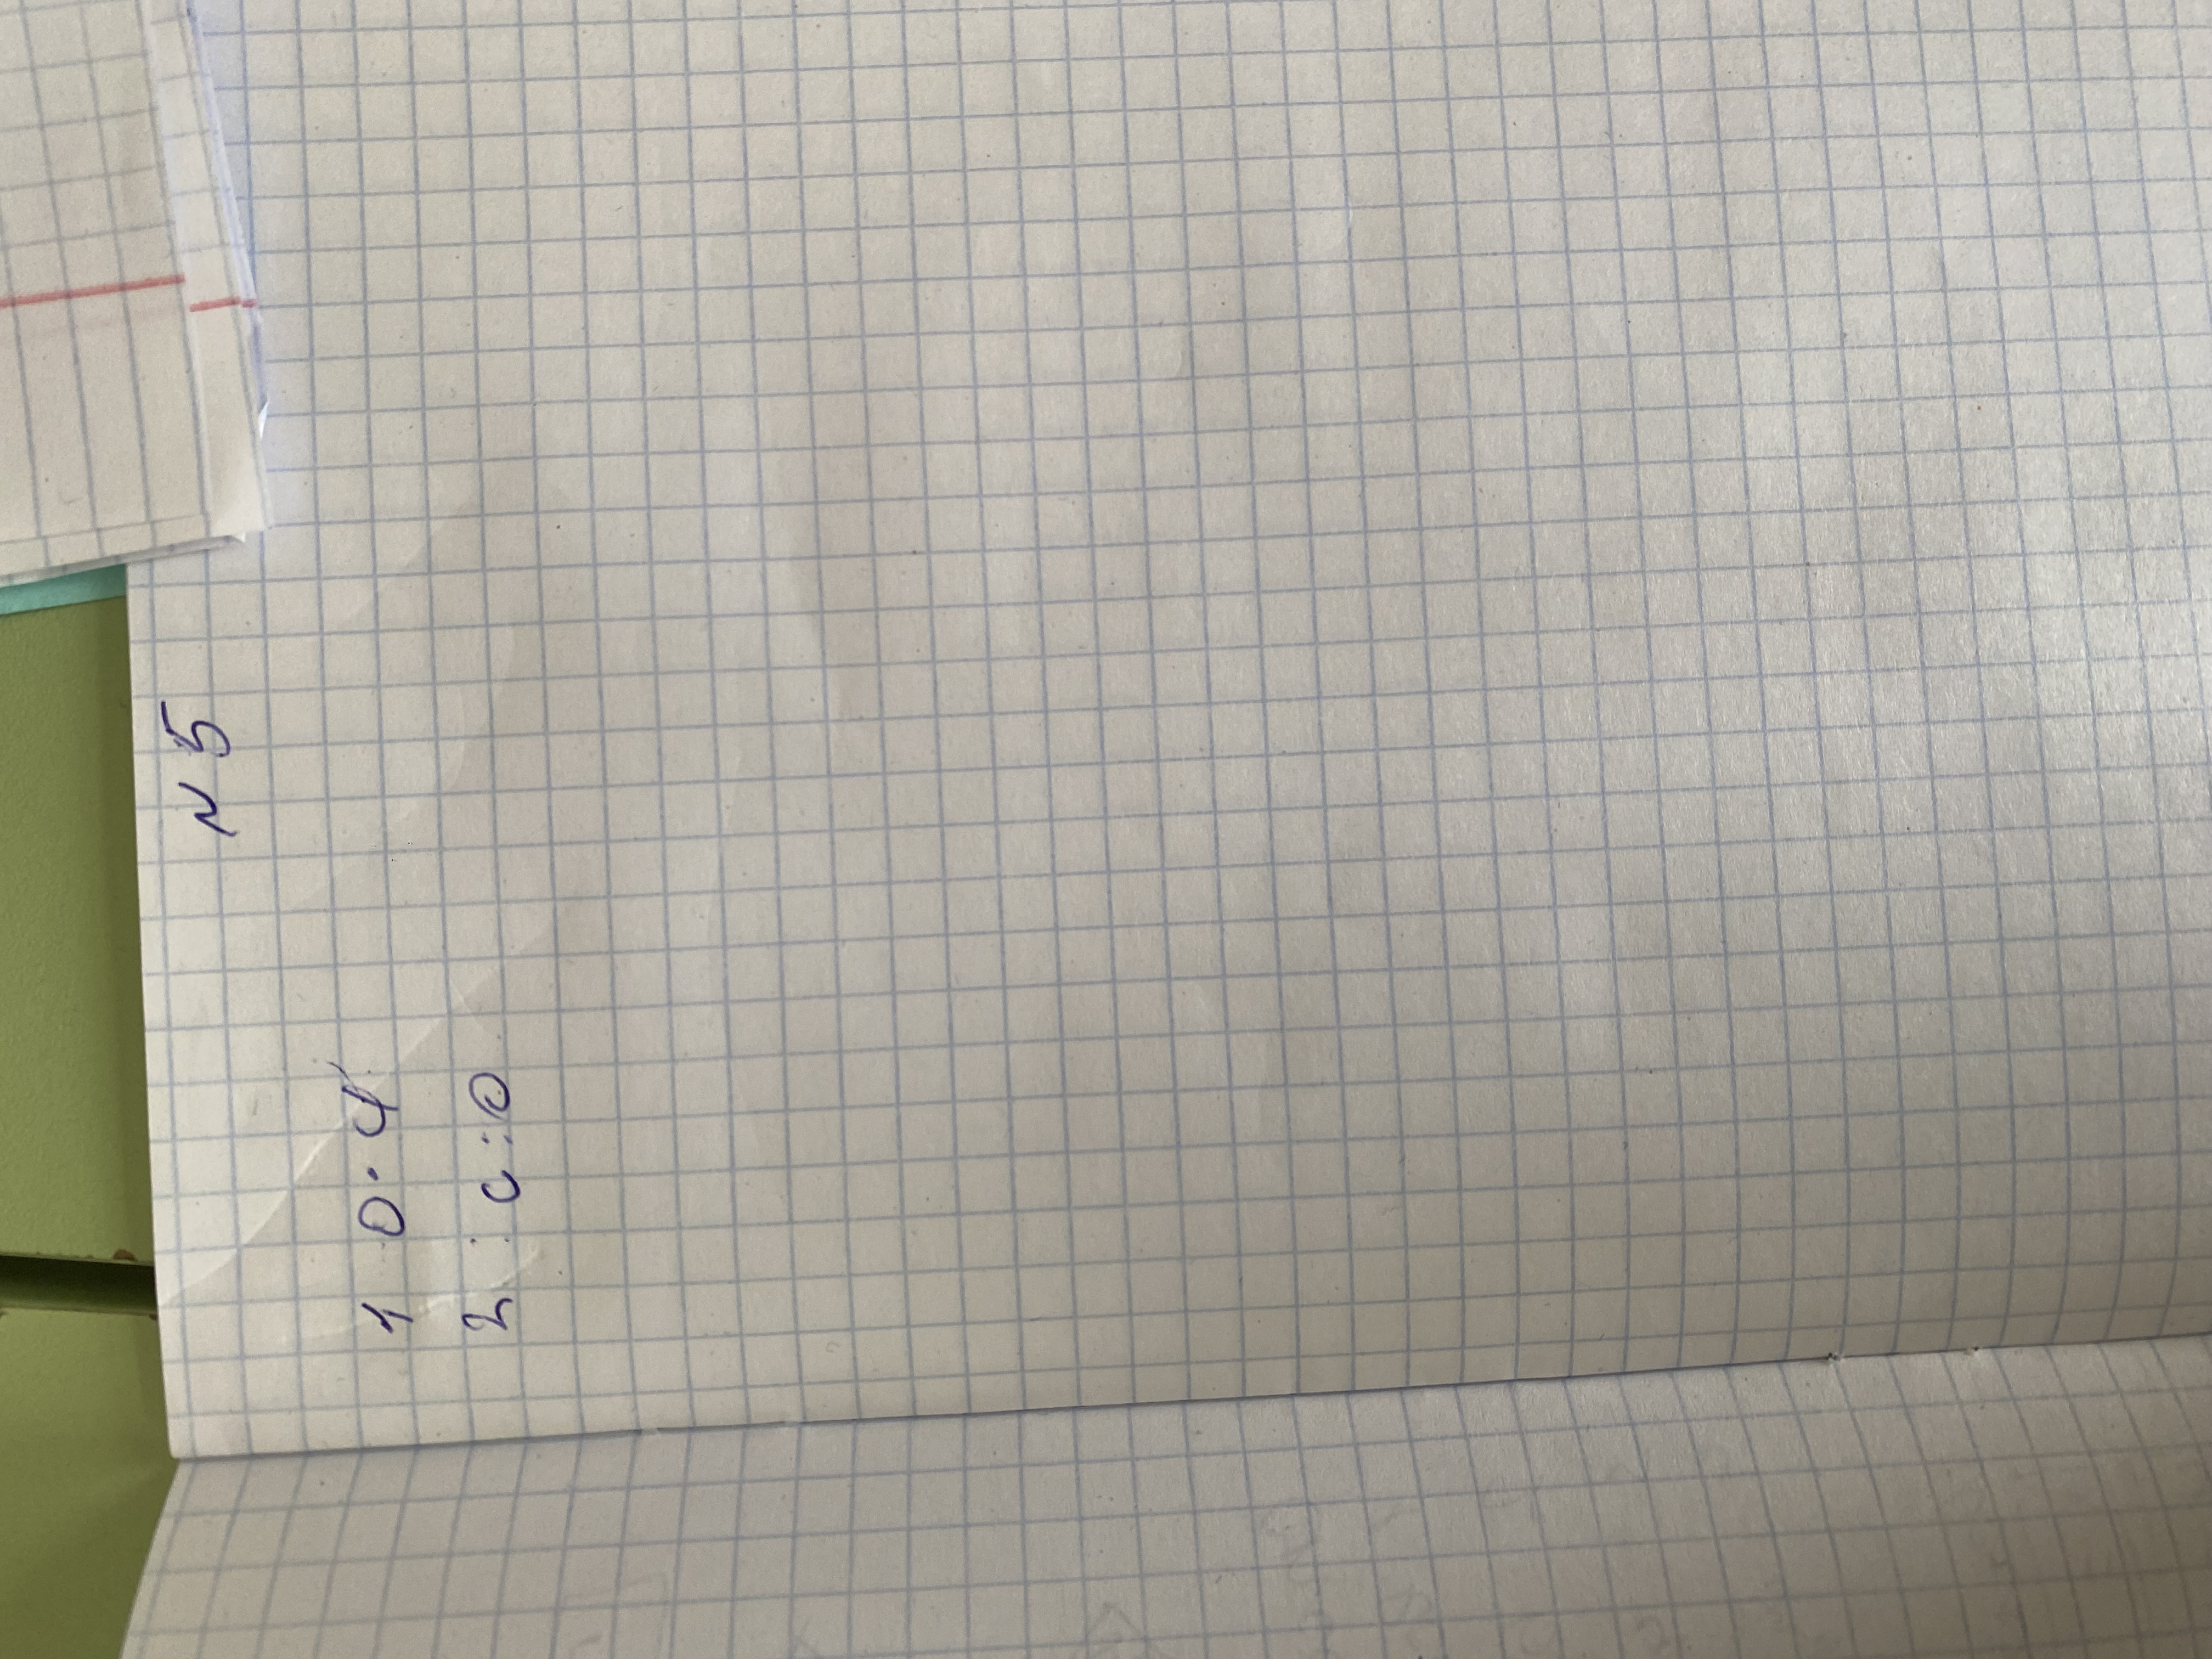 N 5
1 0 · 4
2 : c : 0